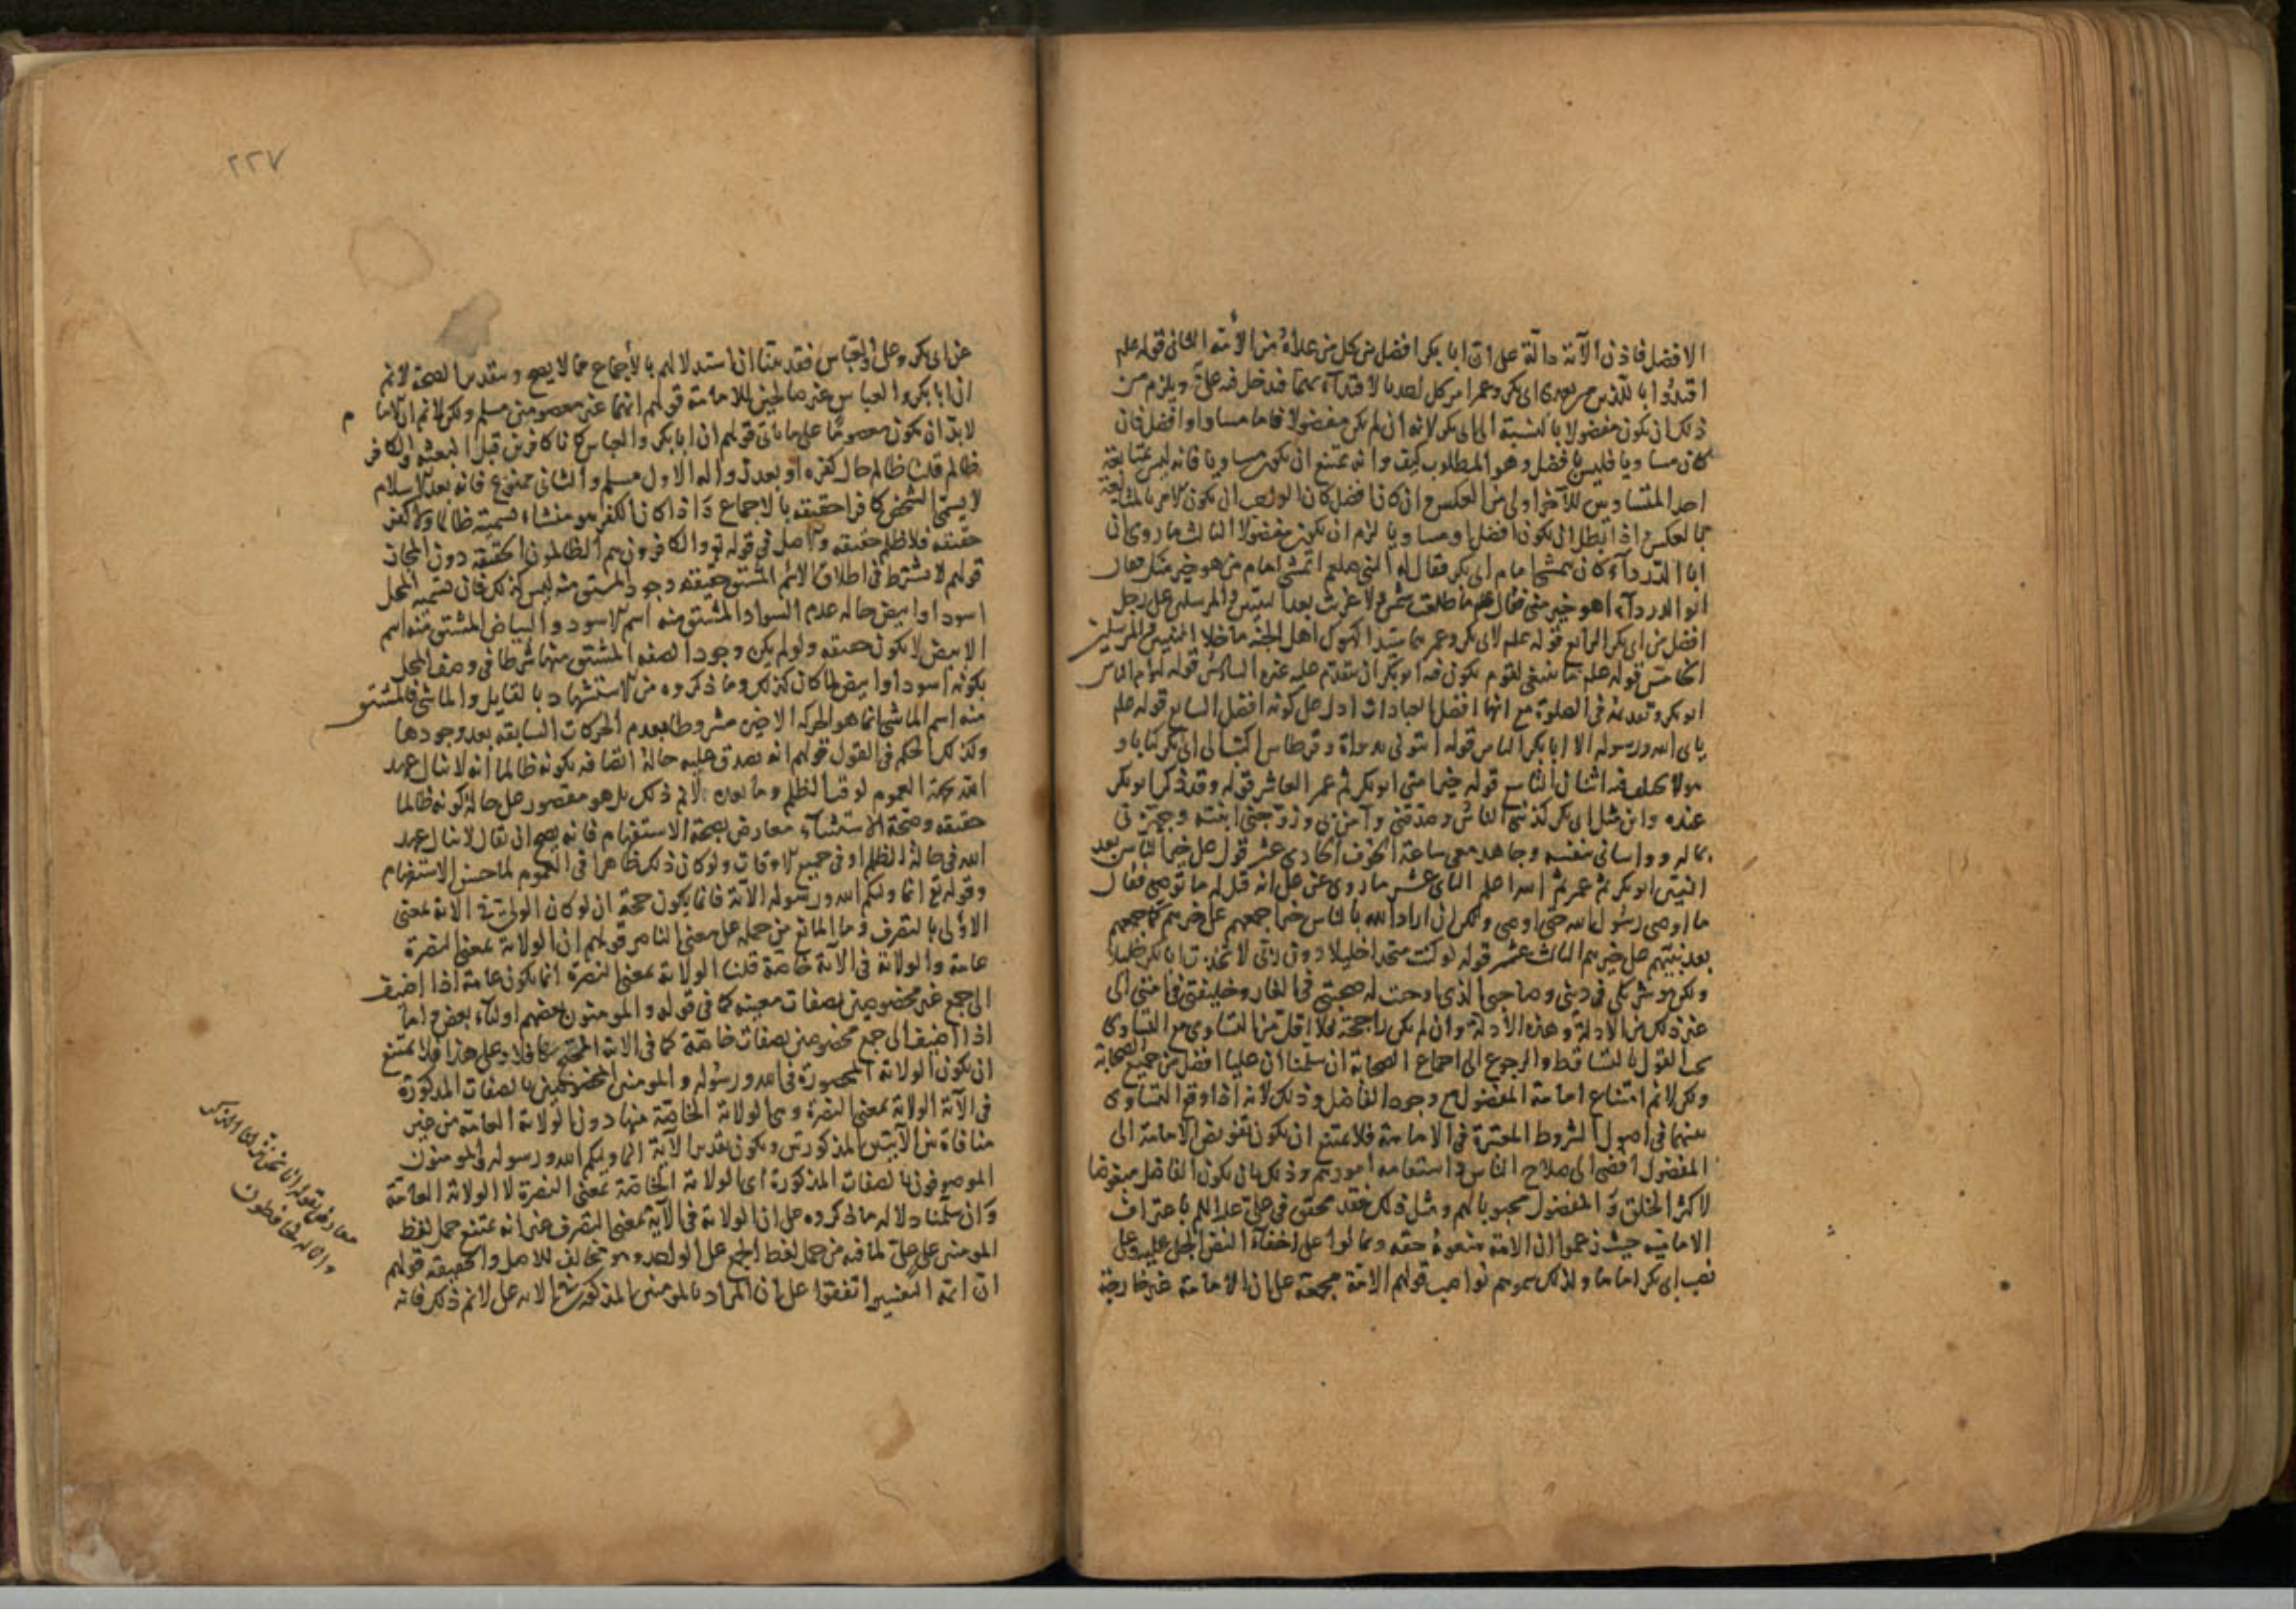 الافضل فاذن الآية دالة على ان ابا بكر افضل من كل من عداه من الأمة الثانى قوله علم
اقتدوا باللذين من بعدى ابى بكر وعمر امر كل احد بالاقتداء بهما فدخل فيه على ويلزم من
ذلك ان يكون مفضولا بالنسبة الى ابى بكر لانه ان لم يكن مفضولا فاما مساو او افضل فان
كان مساويا فليس بافضل وهو المطلوب كيف وانه يمتنع ان يكون مساويا فانه ليس متابعة
احد المتساويين للآخر اولى من العكس وان كان افضل كان الواجب ان يكون الامر بالمتابعة
بالعكس واذا بطل ان يكون افضل او مساويا لزم ان يكون مفضولا الثالث ما روى ان
ابا الدرداء كان يمشى امام ابى بكر فقال له النبى صلعم اتمشى امام من هو خير منك فقال
ابو الدرداء اهو خير منى فقال علم ما طلعت شمس ولا غربت بعد النبيين والمرسلين على رجل
افضل من ابى بكر الرابع قوله علم لابى بكر وعمر هما سيدا كهول اهل الجنة ما خلا النبيين والمرسلين
الخامس قوله علم ما ينبغى لقوم يكون فيه ابو بكر ان يتقدم عليه غيره السادس قوله ليؤم الناس
ابو بكر وتقديمه فى الصلوة مع انها افضل العبادات ادل على كونه افضل السابع قوله علم
يابى الله ورسوله الا ابا بكر الثامن قوله ائتونى بدواة وقرطاس اكتب الى ابى بكر كتابا و
هو لا يختلف فيه اثنان التاسع قوله خير امتى ابو بكر ثم عمر العاشر قوله وقد ذكر ابو بكر
عنده واين مثل ابى بكر كذبنى الناس وصدقنى وآمن بى وزوجنى ابنته وجهزنى
بماله وواسانى بنفسه وجاهد معى ساعة الخوف الحادى عشر قول على خير الناس بعد
النبيين ابو بكر ثم عمر ثم الله اعلم الثانى عشر ما روى عن على انه قيل له ما توصى فقال
ما اوصى رسول الله حتى اوصى ولكن ان اراد الله بالناس خيرا جمعهم على خيرهم كما جمعهم
بعد نبيهم على خيرهم الثالث عشر قوله لو كنت متخذا خليلا دون ربى لاتخذت ابا بكر خليلا
ولكن هو شريكى فى دينى وصاحبى الذى اوجبت له صحبتى فى الغار وخليفتى فى امتى الى
غير ذلك من الادلة وهذه الأدلة وان لم تكن راجحة فلا اقل من التساوى ومع التساوى كا
يجب القول بالتساقط والرجوع الى اجماع الصحابة ان سلمنا ان عليا افضل من جميع الصحابة
ولكن لانم امتناع امامة المفضول مع وجود الفاضل وذلك لانه اذا وقع التساوى
بينهما فى اصول الشروط المعتبرة فى الامامة فلا يمتنع ان يكون تفويض الامامة الى
المفضول افضى الى صلاح الناس واستقامة امورهم وذلك بان يكون الفاضل مبغوضا
لاكثر الخلق والمفضول محبوبا لهم ومثل ذلك فقد تحقق فى على علم باعتراف
الامامية حيث زعموا ان الامة منعوه حقه وتمالوا على اخفاء النص الجلى عليه وعلى
نصب ابى بكر اماما ولذلك سموهم نواصب قولهم الامة مجمعة على ان الامامة غير خارجة
٢٢٧
عن ابى بكر وعلى والعباس فقد بينا ان استدلالهم بالأجماع مما لا يصح وبتقدير الصحة لانم
ان ابا بكر والعباس غير صالحين للامامة قولهم انهما غير معصومين مسلم ولكن لانم ان الاما م
لا بد ان يكون معصوما على ما ياتى قولهم ان ابا بكر والعباس كانا كافرين قبل البعثة والكافر
ظالم قلنا ظالم حال كفره او بعد زواله الاول مسلم والثانى ممنوع فانه بعد الاسلام
لا يسمى الشخص كافرا حقيقة بالاجماع واذا كان الكفر هو منشاء تسميته ظالما ولا كفر
حقيقة فلا ظلم حقيقة والاصل فى قوله تع والكافرون هم الظالمون الحقيقة دون المجاز
قولهم لا يشترط فى اطلاق الاسم المشتق حقيقة وجود المشتق منه ليس كذلك فان تسمية المحل
اسود او ابيض حالة عدم السواد المشتق منه اسم الاسود والبياض المشتق منه اسم
الابيض لا يكون حقيقة ولو لم يكن وجود الصفة المشتق منها شرطا فى وصف المحل
بكونه اسود او ابيض لما كان كذلك وما ذكروه من الاستشهاد بالقايل والماشى فالمشتق
منه اسم الماشى انما هو الحركة الاخيرة مشروطا بعدم الحركات السابقة بعد وجودها
وكذلك الحكم فى القول قولهم انه يصدق عليه حالة اتصافه بكونه ظالما انه لا ينال عهد
الله بجهة العموم لوقت الظلم وما بعده لانم ذلك بل هو مقصور على حالة كونه ظالما
حقيقة وصحة الاستثناء معارض بصحة الاستفهام فانه يصح ان يقال لا ينال عهد
الله فى حالة الظلم او فى جميع الاوقات ولو كان ذلك ظاهرا فى العموم لما حسن الاستفهام
وقوله تع انما وليكم الله ورسوله الآية فانما يكون حجة ان لو كان الولى فى الاية بمعنى
الاولى بالتصرف وما المانع من حمله على معنى الناصر قولهم ان الولاية بمعنى النصرة
عامة والولاية فى الآية خاصة قلنا الولاية بمعنى النصرة انما يكون عامة اذا اضيف
الى جمع غير مخصوصين بصفات معينة كما فى قوله والمومنون بعضهم اولياء بعض واما
اذا اضيف الى جمع مخصوصين بصفات خاصة كما فى الاية المحتج بها فلا وعلى هذا فلا يمتنع
ان تكون الولاية المحصورة فى الله ورسوله والمومنين المخصوصين بالصفات المذكورة
فى الآية الولاية بمعنى النصرة وهى الولاية الخاصة منها دون الولاية العامة من غير
منافاة بين الآيتين المذكورتين ويكون تقدير الآية انما وليكم الله ورسوله والمومنون
الموصوفون بالصفات المذكورة اى الولاية الخاصة بمعنى النصرة لا الولاية العامة
وان سلمنا دلالة ما ذكروه على ان الولاية فى الآية بمعنى التصرف غير انه يمتنع حمل لفظ
المومنين على على لما فيه من حمل لفظ الجمع على الواحد وهو مخالف للاصل والحقيقة قولهم
ان ائمة التفسير اتفقوا على ان المراد بالمومنين المذكورين فى الاية على لانم ذلك فانه
معارض بقوله انا نحن نزلنا الذكر
وانا له لحافظون